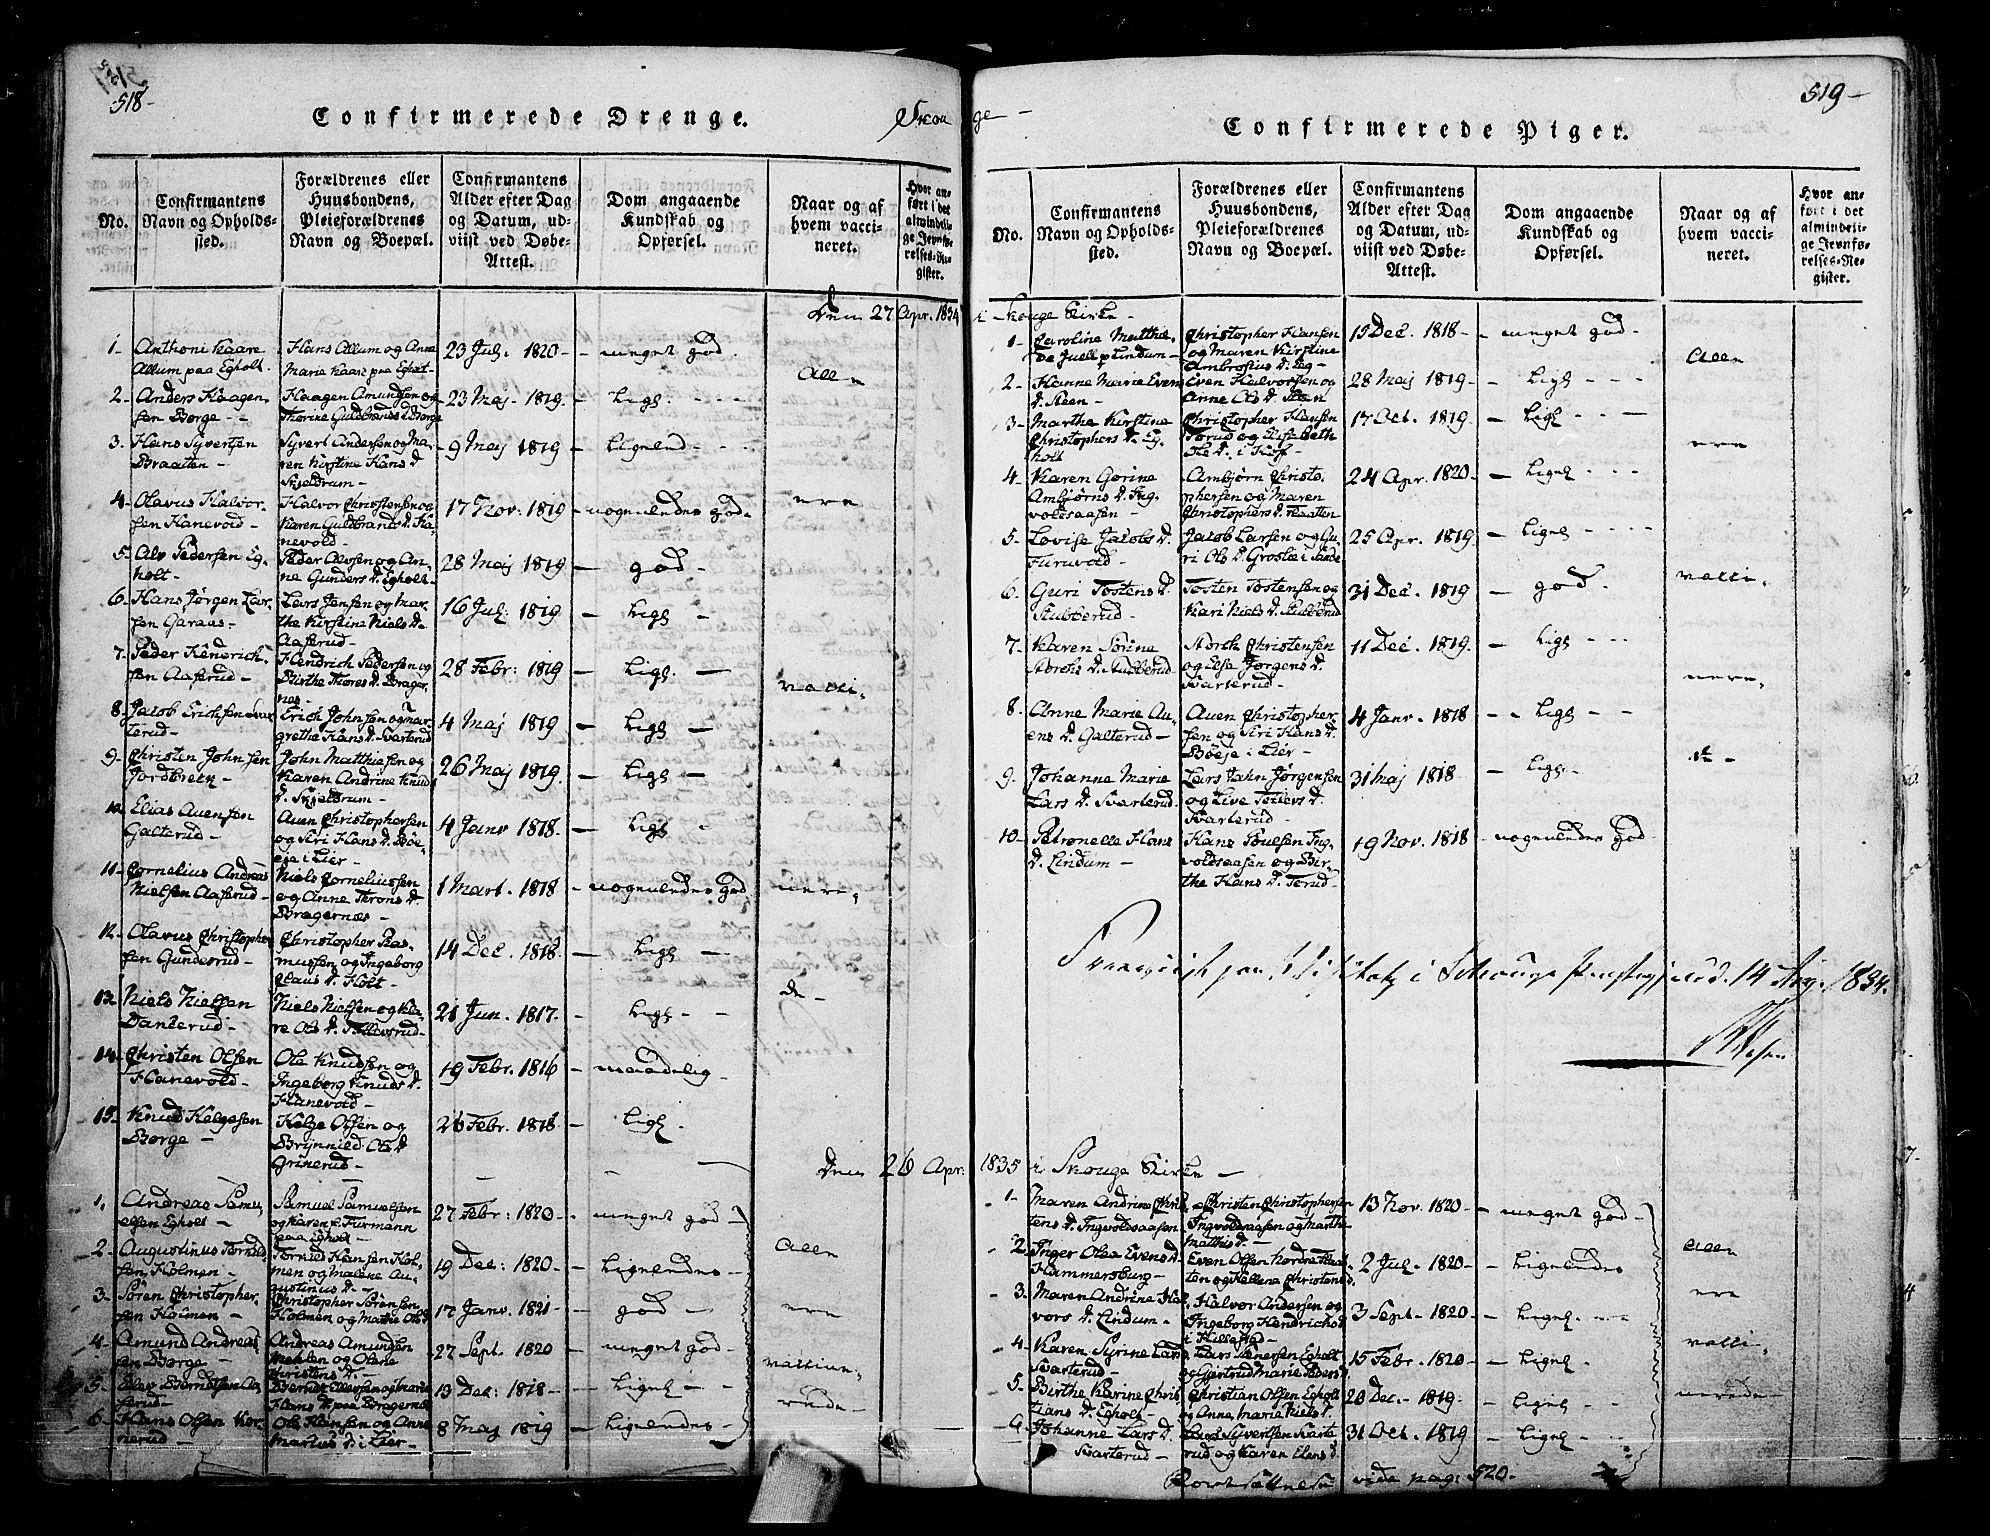 518-
Confirmerede Drenge.
No.
Confirmantens
Navn og Opholds-
sted.
Forældrenes eller
Huusbondens,
Pleieforældrenes
Navn og Boepæl.
Confirmantens
Alder efter Dag
og Datum, ud-
viist ved Døbe-
Attest.
Dom angaaende
Kundskab og
Opførsel.
Naar og af
hvem vacci-
neret.
Hvor an-
ført i det
almindeli-
ge Jevnfø-
relses-Re-
gister.
Den 27 Apr. 1834
1- Anthoni Kaare
Allum paa Egholt.
Hans Allum og Anne
Marie Kaare paa Egholt-
23 Jul: 1820-
meget god.
Alle
2- Anders Haagen-
sen Børge - -
Haagen Amundsen og
Thorine Guldbrands d. Børge
23 Maj. 1819.
- Ligl.
3. Hans Syversen
Braaten -
Syvert Andersen og Ma-
ren Kirstine Hans d.
Skjeldrum-
9 Maj 1819
- Lignend
4- Olavus Halvor-
sen Hanevold-
Halvor Christensen og
Karen Guldbrands d. Ha-
nevold-
17 Nov: 1819
- nogenledes god-
ere
5- Alv Pedersen Eg-
holt-
Peder Alvsen og An-
ne Gunders d. Egholt-
28 Maj 1819
- god-
6- Hans Jørgen Lar-
sen Garaas-
Lars Jensen og Mar-
the Kirstine Niels d.
Aaserud-
16 Jul: 1819
- Ligl
7- Peder Hendrich-
sen Aaserud-
Hendrich Pedersen og
Birthe Thores d. Brager-
nes-
28 Febr: 1819
- Ligl. -
vacci-
8- Jacob Erichsen Svar-
terud-
Erich Johnsen og Mar-
grethe Hans d. Svarterud
4 Maj 1819
- Ligl -
9- Christen Johnsen
John Matthiesen og
Karen Andrine Knud
d. Skjeldrum-
26 Maj 1819.
- Ligl -
10- Elias Auensen
Galterud-
Auen Christophersen
og Siri Hans d. Bøe-
eje i Lier-
4 Janv 1818.
- Ligl -
11- Cornelius Andreas
Nielsen Aaserud-
Niels Corneliussen
og Anne Throns d.
Bragernæs-
1 Mart. 1818
- nogenledes god
nere,
12- Olavus Christopher
sen Gunderud-
Christopher Ras-
mussen og Ingeborg
Claus d. Holt-
14 Dec. 1818
- Ligl -
13- Niels Nielsen
Danserud-
Niels Nielsen og Ka-
re Ols d. Tollevsrud-
21 Jun. 1817.
- Ligl - -
de-
14- Christen Olsen
Hanevold-
Ole Knudsen og
Ingeborg Knuds d.
Hanevold-
19 Febr. 1816
- maadelig-
15- Knud Helgesen
Børge -
Helge Olsen og
Brynnild Ols d
Grinerud-
26 Febr. 1818
- Ligl.
Den 26 Apr:
1. Andreas Samu-
elsen Egholt-
Samuel Samuelsen
og Karen Furmann
paa Egholt-
27 Febr: 1820-
- meget god-
Alle
2- Augustinus Tornid
sen Holmen-
Tornid Hansen Hol-
men og Malene Au-
gustinus d.-
19 Dec: 1820-
- Lignendes-
3- Søren Christopher-
sen Holmen-
Christopher Sørensen
Holmen og Marie Ols d
17 Janv. 1821-
- god -
ere
4- Amund Andreas
sen Børge -
Andreas Amundsen
og Olene
Christens d.-
27 Sept. 1820
- meget god-
vaccine-
5- Berntsen Aa-
serud-
Hans d. paa Bragernes
13 Dec: 1818-
- Lignel -
rede-
6- Hans Olsen Kor-
nerud-
Ole Hansen og Anne
Marius d. i Lier-
8 Maj 1819
- Lignendes-
Skou
ge -
519-
Confirmerede Piger.
No.
Confirmantens
Navn og Opholds-
sted.
Forældrenes eller
Huusbondens,
Pleieforældrenes
Navn og Boepæl.
Confirmantens
Alder efter Dag
og Datum, ud-
viist ved Døbe-
Attest.
Dom angaaende
Kundskab og
Opførsel.
Naar og af
hvem vacci-
neret.
Hvor an-
ført i det
almindeli-
ge Jevnfø-
relses-Re-
gister.
i Skouge Kirke-
1- Caroline Matthil-
de Juell p Lindum-
Christopher Hansen
og Maren Kirstine
Ambrosius d.
15 Dec. 1818-
- meget god-
Alle
2- Hanne Marie Even
d. Steen-
Even Halvorsen og
Anne Ols d. Steen
28 Maj 1819-
- Ligl - - -
3- Marthe Kirstine
Christophers d. Eg-
holt
Christopher Hansen
Torud og Elisabeth
17 Oct. 1819-
- Ligl - - -
ere
4- Karen Gorine
Ambjørns d. Ing-
voldsaasen-
Ambjørn Christo-
phersen og Maren
Christophers d. Flaatten-
24 Apr. 1820-
- Lignl
5- Lovise Jacobs d.
Furuvold-
Jacob Larsen og Gu-
ri Ols d. Grosløe i Sande
25 Apr. 1819.
- Lignel
6- Guri Tostens d.
Stubberud-
Tosten Tostensen og
Kari Niels d. Stubberud
31 Dec. 1819
- god.
vacci-
7- Karen Sørine
Storchs d. Stubberud
Storch Christensen
og Else Jørgens d.
Svarterud-
11 Dec. 1819.
- Ligl
nere-
8- Anne Marie Au-
ens d. Galterud-
Auen Christopher-
sen og Siri Hans d.
Bøeje i Lier-
4 Janv. 1818
- Ligl - -
9- Johanne Marie
Lars d. Svarterud-
Lars Jahn Jørgensen
og Live Tellevs d.
Svarterud-
31 Maj 1818-
- Ligl-
de-
10- Petronelle Hans
d. Lindum-
Hans Poulsen Ing-
voldsaasen og Bir-
the Hans d. Torud-
19 Nov. 1818
- nogenledes god
14 Aug. 1834.
1835 i Skouge Kirke-
1- Maren Andrine Chris
tens d. Ingvoldsaasen
Christen Christophersen
Ingvoldsaasen og Marthe
Matthis d.-
13 Nov. 1820-
- meget god-
Alle
2. Inger Olea Evens d.
Hammersburg-
Even Olsen Nordre Flaa-
ten og Hellene Christens d.
2 Jul. 1820
- Lignendes
3. Maren Andrine Hal-
vors d. Lindum-
Halvor Andersen og
Ingeborg Hendrichs d
i Hillestad-
3 Sept. 1820
- Lignel.
ere
4- Karen Syrine Lars d
Svarterud-
og Gjertrud Marie Peders d.
15 Febr. 1820-
- Lignel.
vacci-
5- Birthe Karine Chris
tians d. Egholt-
Christian Olsen Egholt
og Anne Marie Niels d.
20 Dec. 1819.
- Lignel -
nerede-
Johanne Lars d.
Svarterud-
Lars Syversen Svarte-
rud og Karen Elens d.
31 Oct. 1819
- Lignel -
Fortsættelse vide pag: 520-